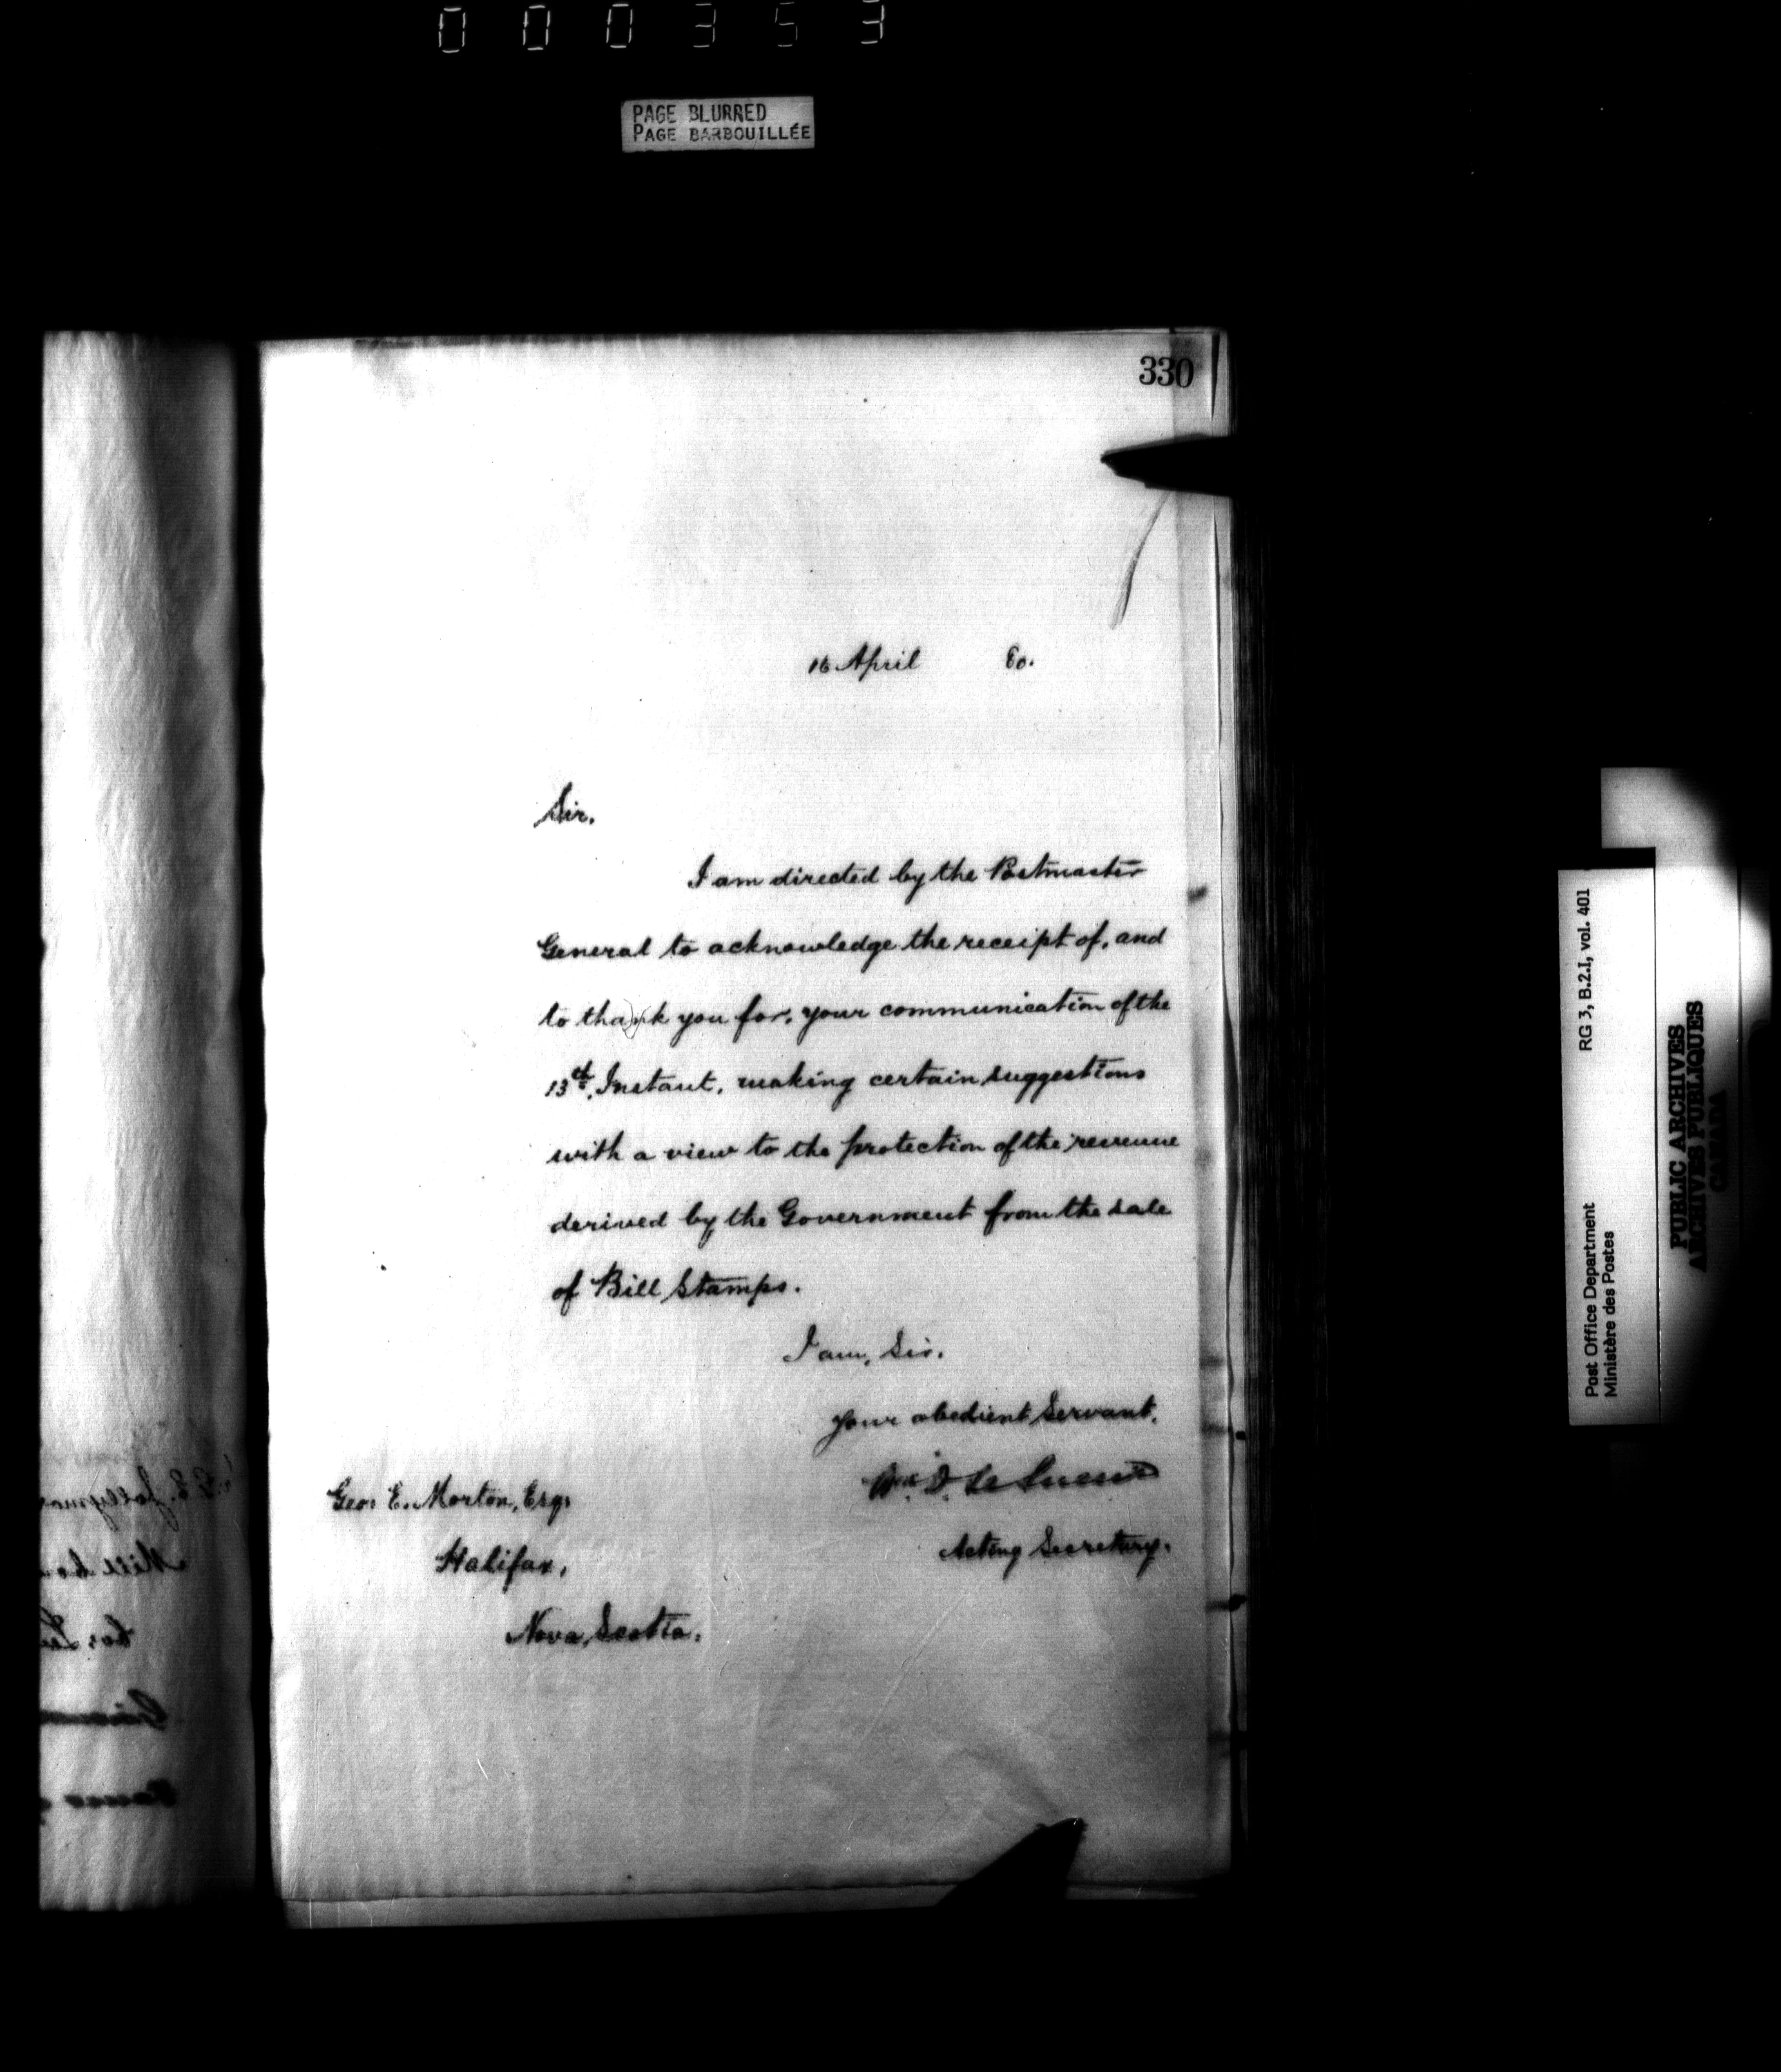 000353
PAGE BLURRED
PAGE BARBOUILLÉE
330
16 April 80.
Sir.
I am directed by the Postmaster
General to acknowledge the receipt of, and
to thank you for, your communication of the
13th. Instant, making certain suggestions
with a view to the protection of the revenue
derived by the Government from the sale
of Bill Stamps.
I am, Sir.
Your obedient Servant.
Wm. D. Le Sueur
Acting Secretary.
Geo. E. Morton, Esq.
Halifax,
Nova Scotia.
RG 3, B.2.I, vol. 401
Post Office Department
Ministère des Postes
PUBLIC ARCHIVES
ARCHIVES PUBLIQUES
CANADA